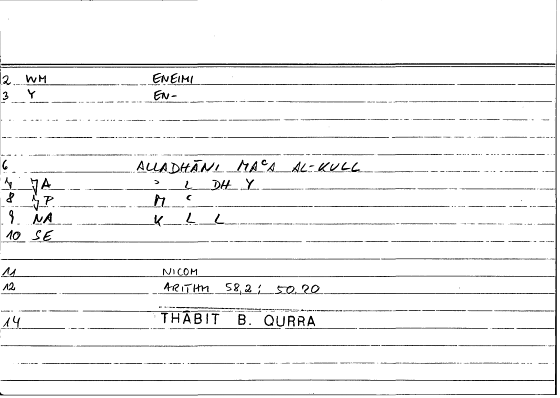 2 WM ENEIMI
3 Y EN-
6 ALLADHĀNI MAᶜA AL-KULL
7 ๅA ᵓ L DH Y
8 ๅP M ᶜ
9 NA K L L
10 SE
11 NICOM
12 ARITHM 58,2; 50.20
14 THĀBIT B. QURRA